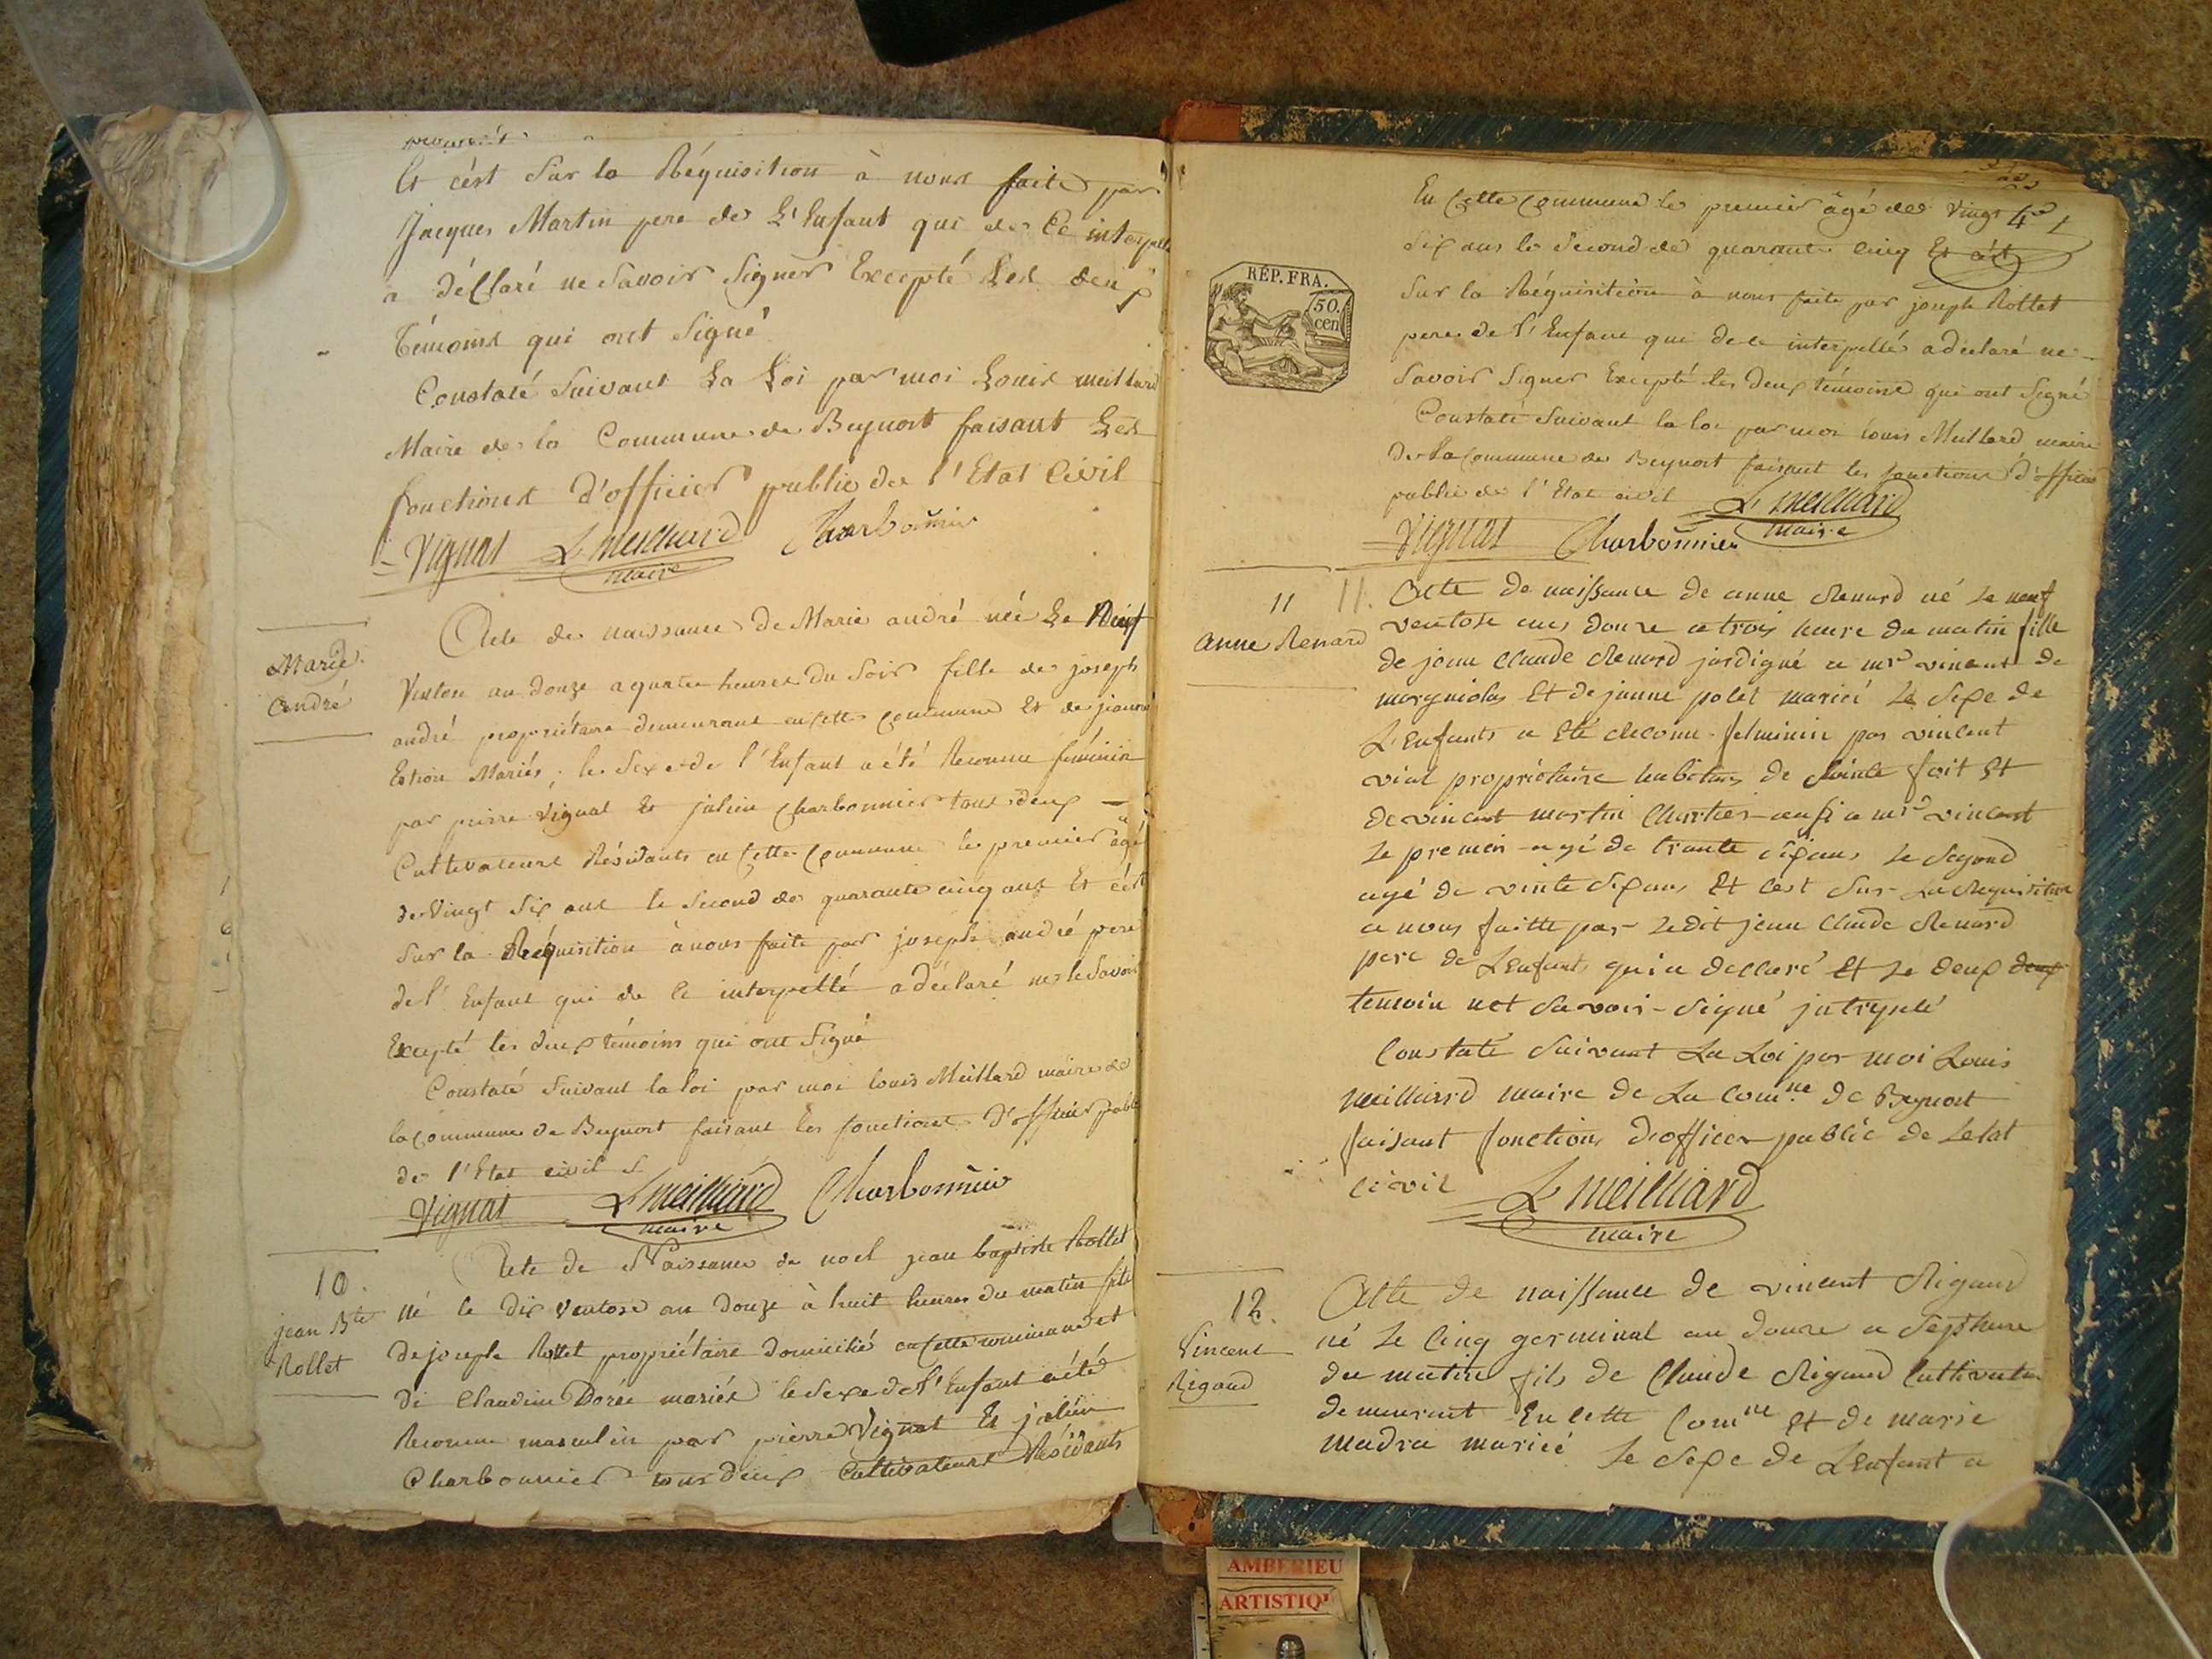 Et cést sur la Réquisition à nous faite par
Jacques Martin pere de L'Enfant qui de Ce interpellé
a déClaré ne savoir signer Excepté Les deux
Témoins qui ont signé
Constaté suivant La Loi par moi Louis meillard
Maire de la Commune de Beynost faisant Les
fonctions d'officier public de l'Etat Civil
Vignat L Meilliard Charbonnier
maire
Marie
André
Acte de naissance de Marie andré née Le Neuf
Ventose an douze a quatre heures du soir fille de joseph
andré propriétaire demeurant en cette commune Et de jeanne
Mariés, le sexe de l'Enfant a été Reconnu féminin
par pierre vignat Et julien Charbonnier tous deux
Cultivateurs Résidants en Cette Commune le premier âgé
de vingt six ans le second de quarante cinq ans Et cést
sur la Réquisition à nous faite par joseph andré pere
de l'Enfant qui de Ce interpellé a déclaré ne le savoir
Excepté les deux témoins qui ont signé
Constaté suivant la loi par moi louis Meillard maire de
la Commune de Beynost faisant les fonctions d'officier public
de l'Etat civil
Vignat L Meilliard Charbonnier
maire
10.
jean Bte
Rollet
Acte de Naissance de noel jean baptiste Rollet
né le dix ventose an douze à huit heures du matin fils
de joseph Rollet propriétaire domicilié en Cette commune et
de Claudine Dorée mariés le sexe de l'Enfant a été
Reconnu masculin par pierre Vignat Et julien
Charbonnier tous deux Cultivateurs Résidants
En Cette Commune le premier âgé de vingt
six ans le second de quarante cinq Et cést
RÉP. FRA.
50.
cen
sur la Réquisition à nous faite par joseph Rollet
pere de l'Enfant qui de ce interpellé a déclaré ne
savoir signer Excepté les deux témoins qui ont signé
Constaté suivant la loi par moi louis Meillard maire
de La Commune de Beynost faisant les fonctions d'officier
public de l'Etat civil L Meilliard
Vignat Charbonnier maire
11
anne Renard
11. Acte de naissance de anne Renard né Le neuf
ventose douze a trois heure du matin fille
de jean Claude Renard a mr vincent de
Et de janne polet mariéé Le sexe de
L'Enfants a Eté Reconu par vincent
vial propriétaire de Sainte foit Et
de vincent martin a mr vincent
Le premier agé de trante Le segond
agé de vinte sixans Et cest sur La Requisition
a nous faitte par Ledit jean Claude Renard
pere de LEnfants qui a declaré Et Le deux deux
temoin savoir signé
Constaté suivant La Loi par moi Louis
Meilliard maire de La Comne de Beynost
faisant fonctions dofficer public de Letat
civil L Meilliard
maire
12.
Vincent
Rigaud
Acte de naissance de vincent Rigaud
né Le Cinq germinal an douze a septheure
du matin fils de Claude Rigaud Cultivateur
demeurant En cette Comne Et de marie
madra mariéé Le sexe de LEnfant a
AMBERIEU
ARTISTIQU